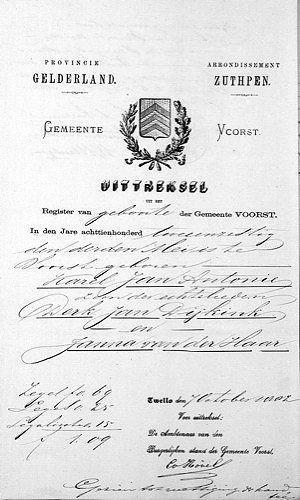 PROVINCIE
GELDERLAND.
ARRONDISSEMENT
ZUTPHEN.
GEMEENTE VOORST.
UITTREKSEL
UIT HET
Register van geboorte der Gemeente VOORST.
In den Jare achttienhonderd tweeenzestig
den derden Meis te
Voorst geboren
Karel Jan Antonie
Zoon der echtelieden
Derk Jan Dijkink
en
Janna van der Haar
Zegel fo. 69
Leges 0.25
Legalisatie .15
f 1.09
Twello den 7 October 1882
Voor uittreksel:
De Ambtenaar van den
Burgerlijken stand der Gemeente Voorst.